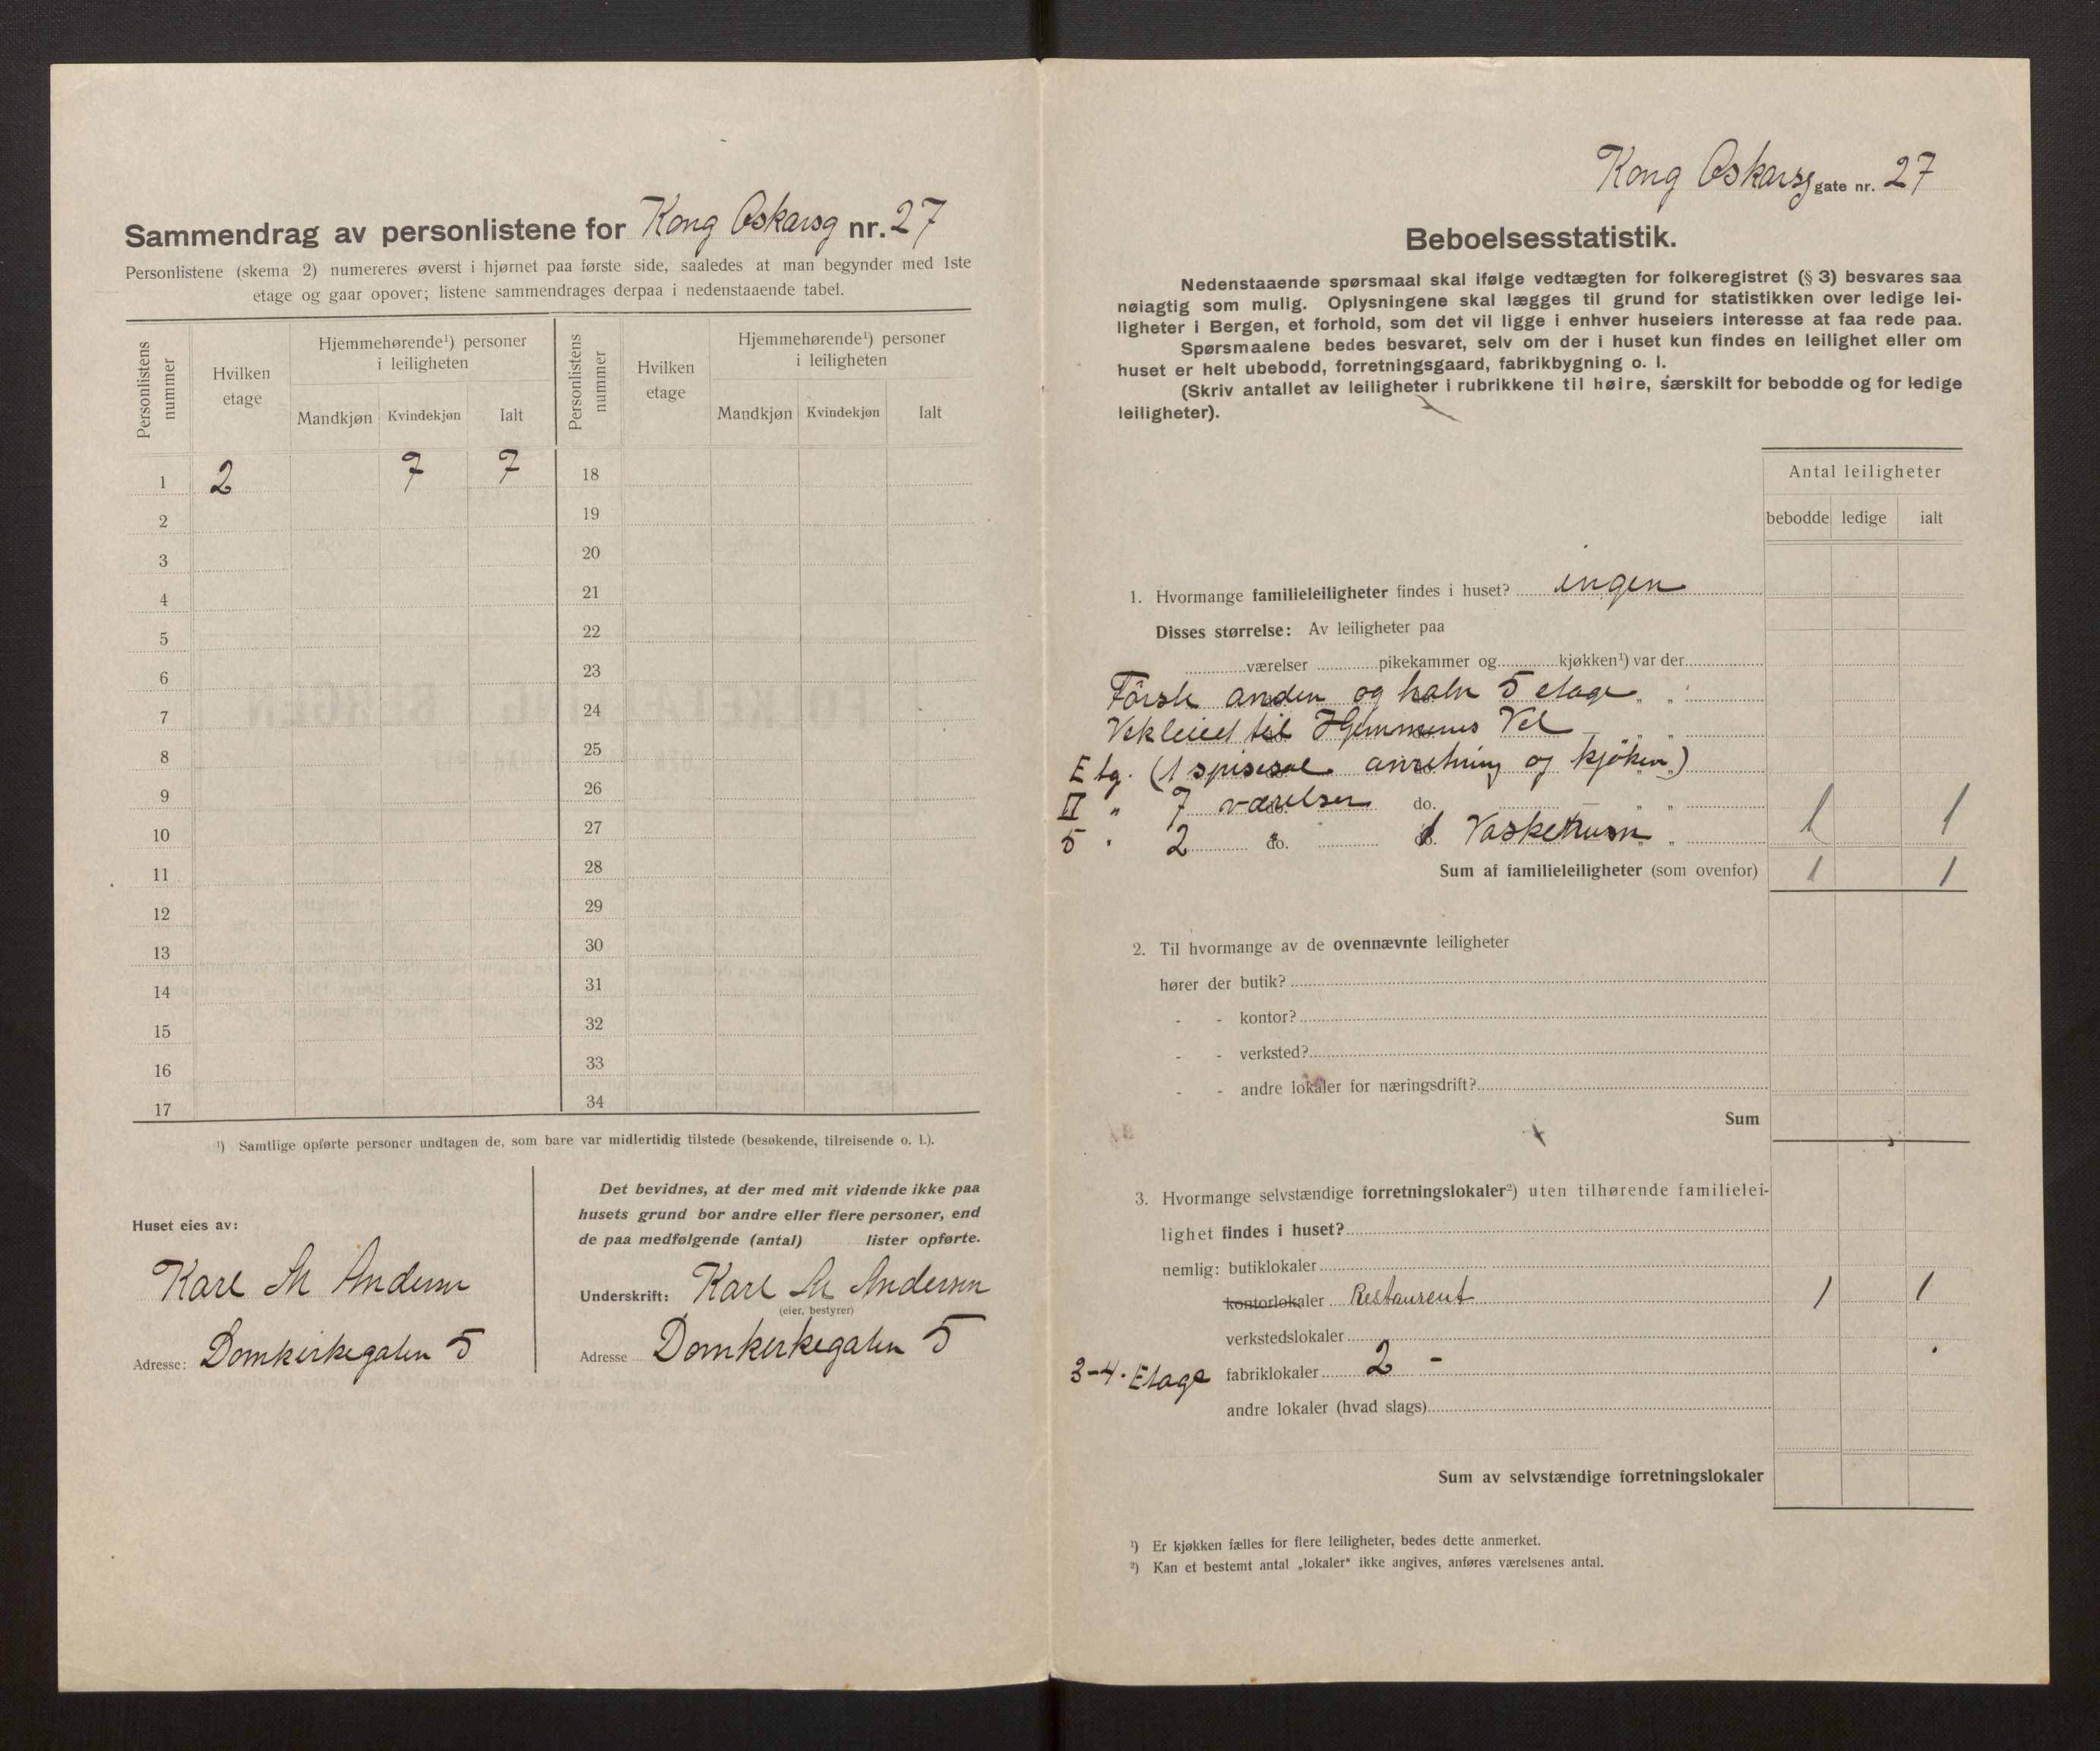 Sammendrag av personlistene for Kong Oskarsg nr. 27
Personlistene (skema 2) numereres øverst i hjørnet paa første side, saaledes at man begynder med 1ste
etage og gaar opover; listene sammendrages derpaa i nedenstaaende tabel.
Personlistens nummer
Hvilken etage
Hjemmehørende¹) personer i leiligheten
Mandkjøn Kvindekjøn Ialt
Personlistens nummer
Hvilken etage
Hjemmehørende¹) personer i leiligheten
Mandkjøn Kvindekjøn Ialt
1 2 7 7 18
2 19
3 20
4 21
5 22
6 23
7 24
8 25
9 26
10 27
11 28
12 29
13 30
14 31
15 32
16 33
17 34
¹) Samtlige opførte personer undtagen de, som bare var midlertidig tilstede (besøkende, tilreisende o. l.).
Huset eies av:
Karl M Andersen
Adresse: Domkirkegaten 5
Det bevidnes, at der med mit vidende ikke paa
husets grund bor andre eller flere personer, end
de paa medfølgende (antal) lister opførte.
Underskrift: Karl M Andersen
(eier, bestyrer)
Adresse Domkirkegaten 5
Kong Oskarsg gate nr. 27
Beboelsesstatistik.
Nedenstaaende spørsmaal skal ifølge vedtægten for folkeregistret (§ 3) besvares saa
nøiagtig som mulig. Oplysningene skal lægges til grund for statistikken over ledige lei-
ligheter i Bergen, et forhold, som det vil ligge i enhver huseiers interesse at faa rede paa.
Spørsmaalene bedes besvaret, selv om der i huset kun findes en leilighet eller om
huset er helt ubebodd, forretningsgaard, fabrikbygning o. l.
(Skriv antallet av leiligheter i rubrikkene til høire, særskilt for bebodde og for ledige
leiligheter).
Antal leiligheter
bebodde ledige ialt
1. Hvormange familieleiligheter findes i huset? ingen
Disses størrelse: Av leiligheter paa
værelser pikekammer og kjøkken¹) var der
Förste anden og halv 5 etage „ „
Vekleiet til Hjemmenes Vel „ „
E tg. (1 spisesal anretning og kjøken) „
II " 7 værelser do. „ „ 1 1
5 " 2 do. 1 Vaskerum „ „
Sum af familieleiligheter (som ovenfor) 1 1
2. Til hvormange av de ovennævnte leiligheter
hører der butik?
- - kontor?
- - verksted?
- - andre lokaler for næringsdrift?
Sum
3. Hvormange selvstændige forretningslokaler²) uten tilhørende familielei-
lighet findes i huset?
nemlig: butiklokaler
kontorlokaler Restaurent 1 1
verkstedslokaler
3-4. Etage fabriklokaler 2 -
andre lokaler (hvad slags)
Sum av selvstændige forretningslokaler
¹) Er kjøkken fælles for flere leiligheter, bedes dette anmerket.
²) Kan et bestemt antal „lokaler“ ikke angives, anføres værelsenes antal.